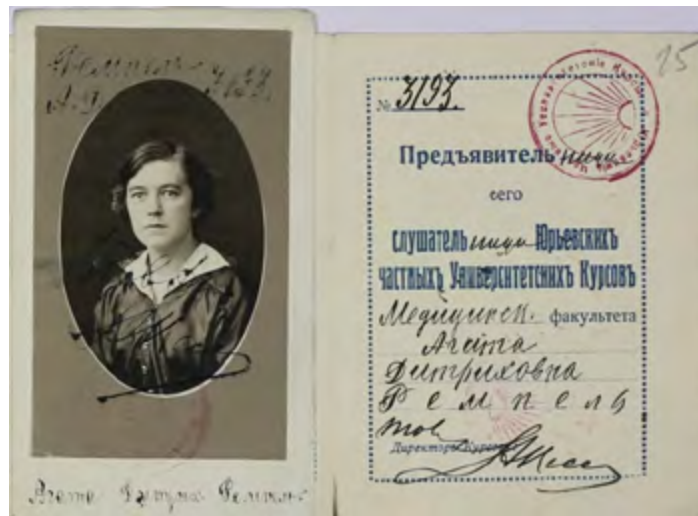 Ремпель
А. Д.
Агата Дитрих. Ремпель
25
№ 3193.
Предъявительница
сего
слушательница Юрьевскихъ
частныхъ Университетскихъ Курсовъ
Медицинск. факультета
Агата
Дитриховна
Ремпель
Директоръ Курсовъ